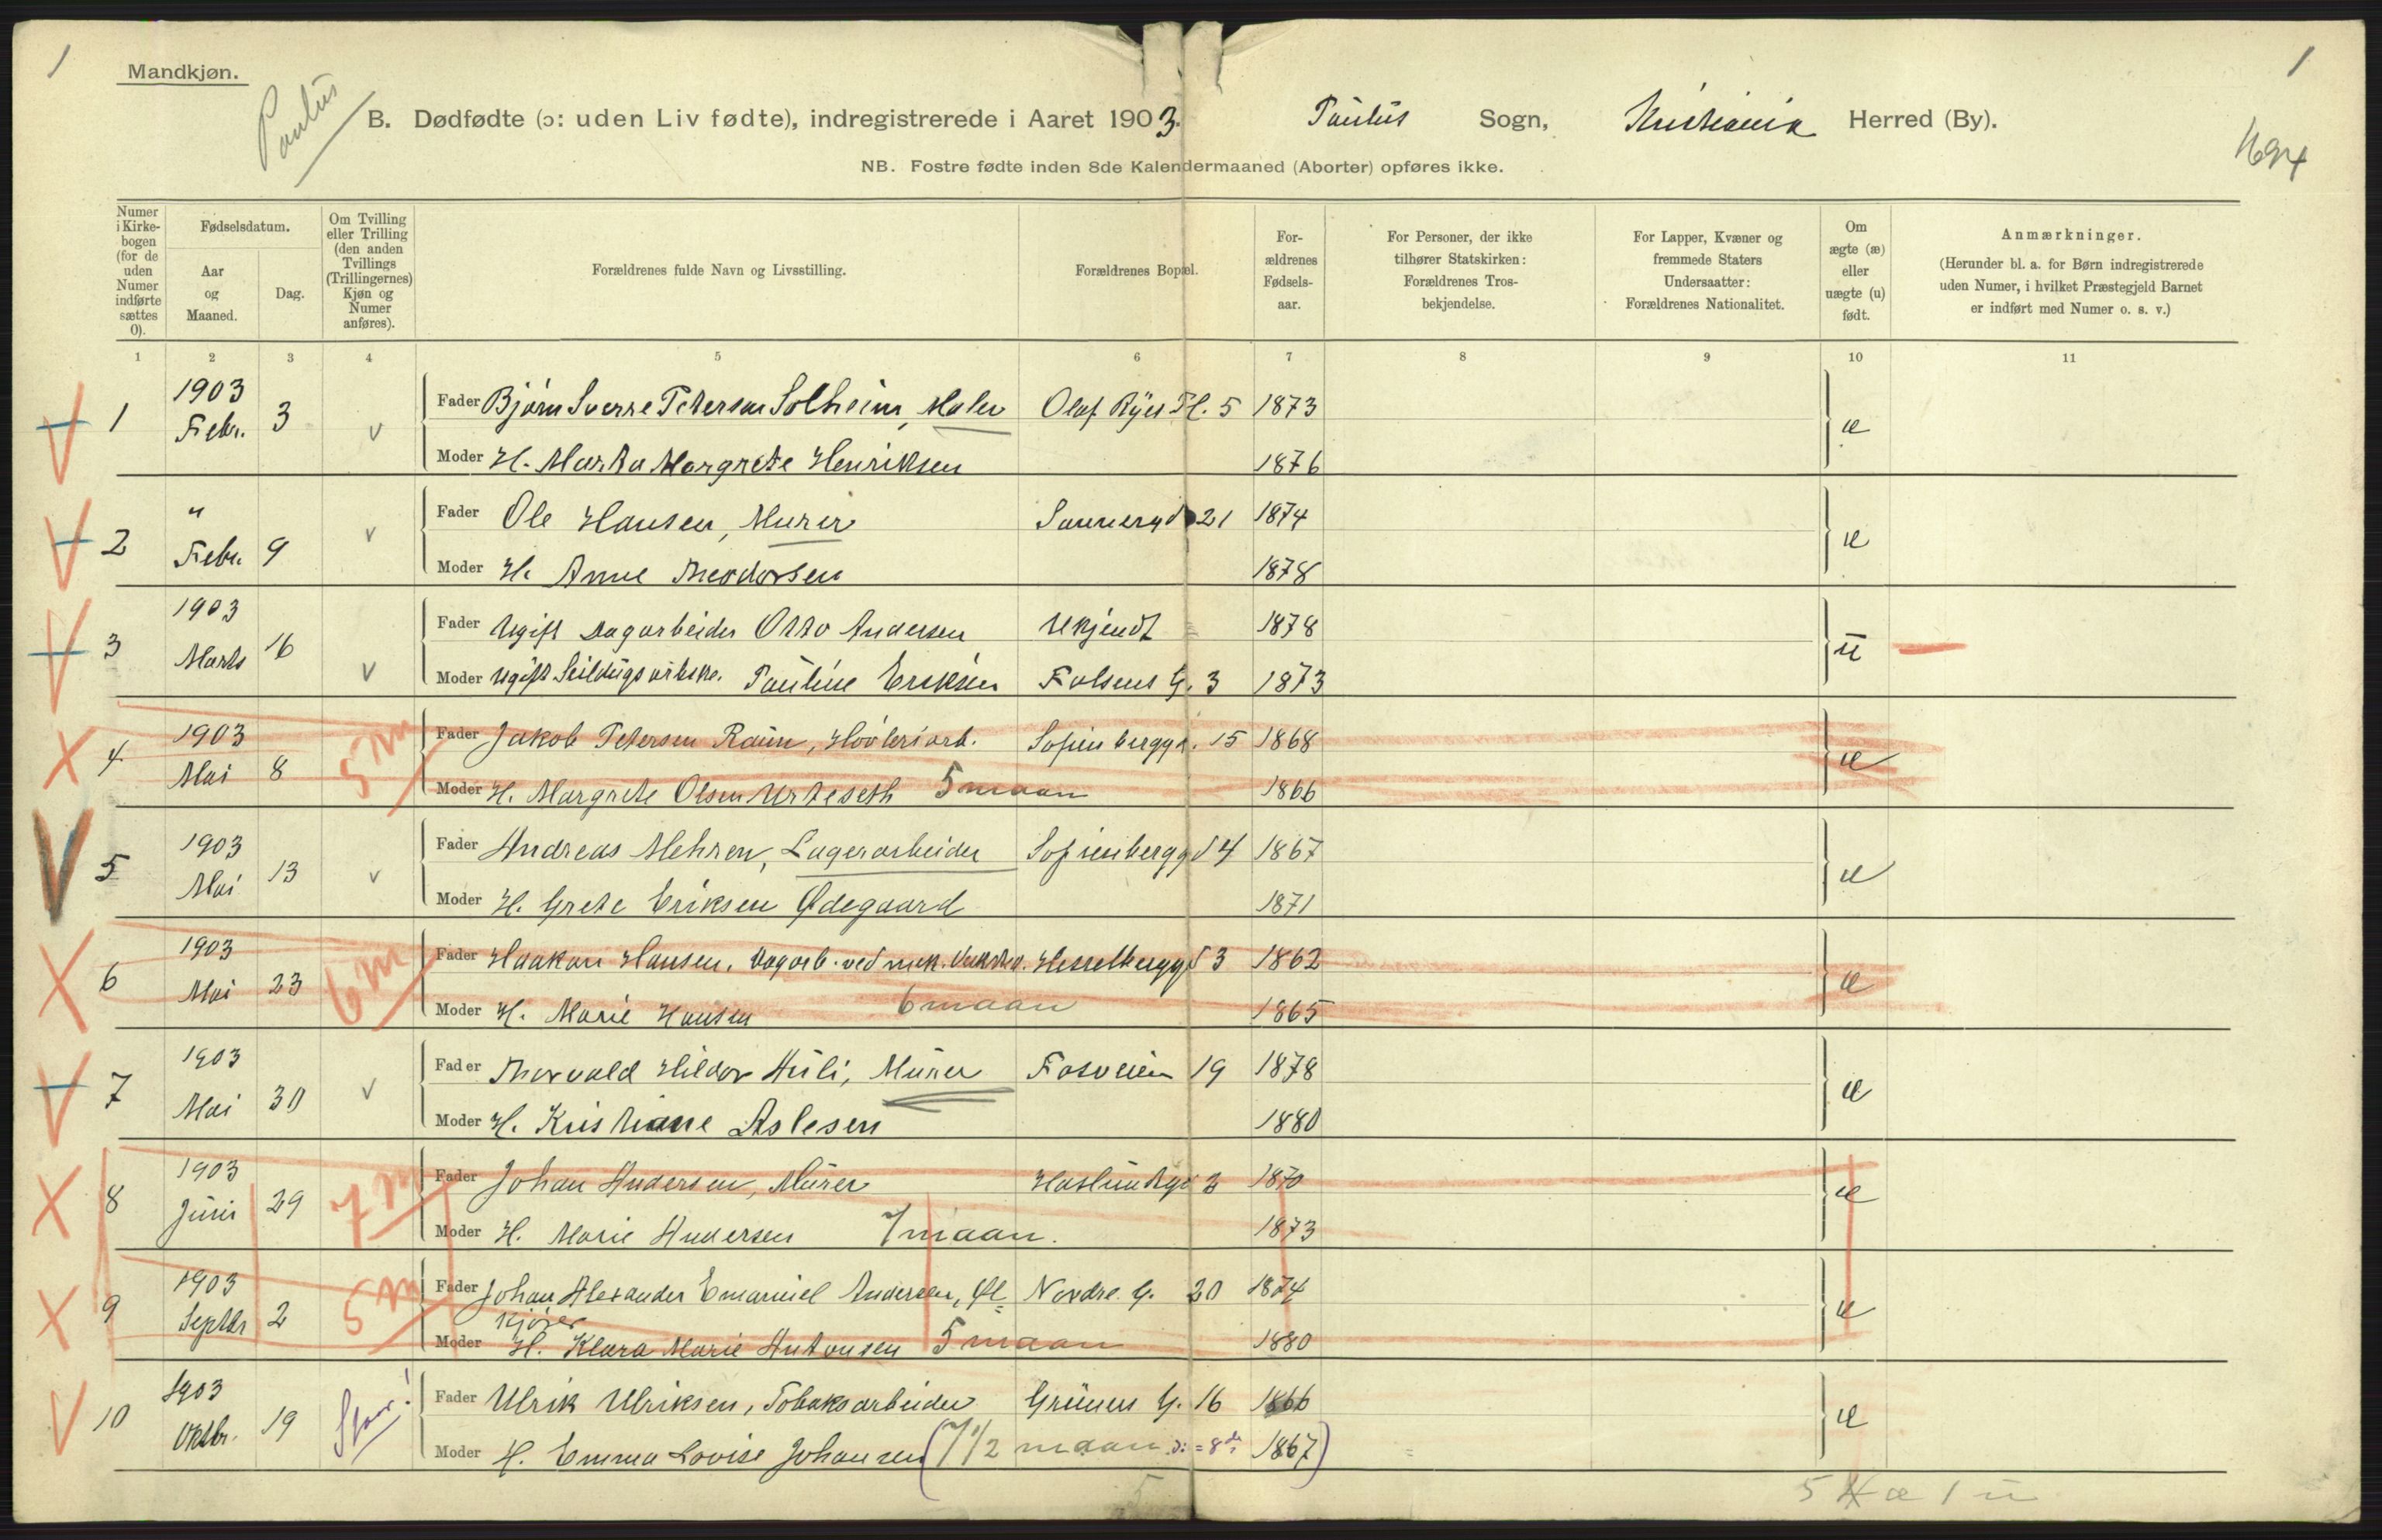 1
Mandkjøn.
Paulus
1
B. Dødfødte (ɔ: uden Liv fødte), indregistrerede i Aaret 1903. Paulus Sogn, Kristiania Herred (By).
NB. Fostre fødte inden 8de Kalendermaaned (Aborter) opføres ikke.
Numer i Kirke-bogen (for de uden Numer indførte sættes 0).
Fødselsdatum.
Aar og Maaned.
Dag.
Om Tvilling eller Trilling (den anden Tvillings (Trillingernes) Kjøn og Numer anføres).
Forældrenes fulde Navn og Livsstilling.
Forældrenes Bopæl.
For-ældrenes Fødsels-aar.
For Personer, der ikke tilhører Statskirken: Forældrenes Tros-bekjendelse.
For Lapper, Kvæner og fremmede Staters Undersaatter: Forældrenes Nationalitet.
Om ægte (æ) eller uægte (u) født.
Anmærkninger.
(Herunder bl. a. for Børn indregistrerede uden Numer, i hvilket Præstegjeld Barnet er indført med Numer o. s. v.)
1 2 3 4 5 6 7 8 9 10 11
1 1903 Febr. 3 v Fader Bjørn Sverre Petersen Solheim, Maler Olaf Ryes Pl. 5 1873 æ
Moder H. Marta Margrete Henriksen 1876
2 " Febr. 9 v Fader Ole Hansen, Murer Sannergd 21 1874 æ
Moder H. Anne Theodorsen 1878
3 1903 Marts 16 v Fader Ugift Dagarbeider Otto Andersen Ukjendt 1878 u
Moder Ugift Seildugsarbske. Pauline Eriksen Falsens G. 3 1873
4 1903 Mai 8 5 m Fader Jakob Petersen Raum, Høvleriarb. Sofienberggd. 15 1868 æ
Moder H. Margrete Olsen Urteseth 5 maan 1866
5 1903 Mai 13 v Fader Andreas Mehren, Lagerarbeider Sofienberggd 4 1867 æ
Moder H. Grete Eriksen Ødegaard 1871
6 1903 Mai 23 6 m Fader Haakon Hansen, Dagarb. ved mek. Verksted. Hesselberggd 3 1862 æ
Moder H. Marie Hansen 6 maan 1865
7 1903 Mai 30 v Fader Thorvald Hildor Huli, Murer Fosveien 19 1878 æ
Moder H. Kristiane Aslesen 1880
8 1903 Juni 29 7 m Fader Johan Andersen, Murer Haslundgd 3 1870 æ
Moder H. Marie Andersen 7 maan. 1873
9 1903 Septbr 2 5 m Fader Johan Alexander Emanuel Andersen, Øl= Nordre G. 20 1874 æ
kjører
Moder H. Klara Marie Antonsen 5 maan 1880
10 1903 Oktbr. 19 Fader Ulrik Ulriksen, Tobaksarbeider Grüners G. 16 1866 æ
Moder H. Emma Lovise Johansen (7 1/2 maan ɔ: = 8de 1867)
5
5 æ 1 u